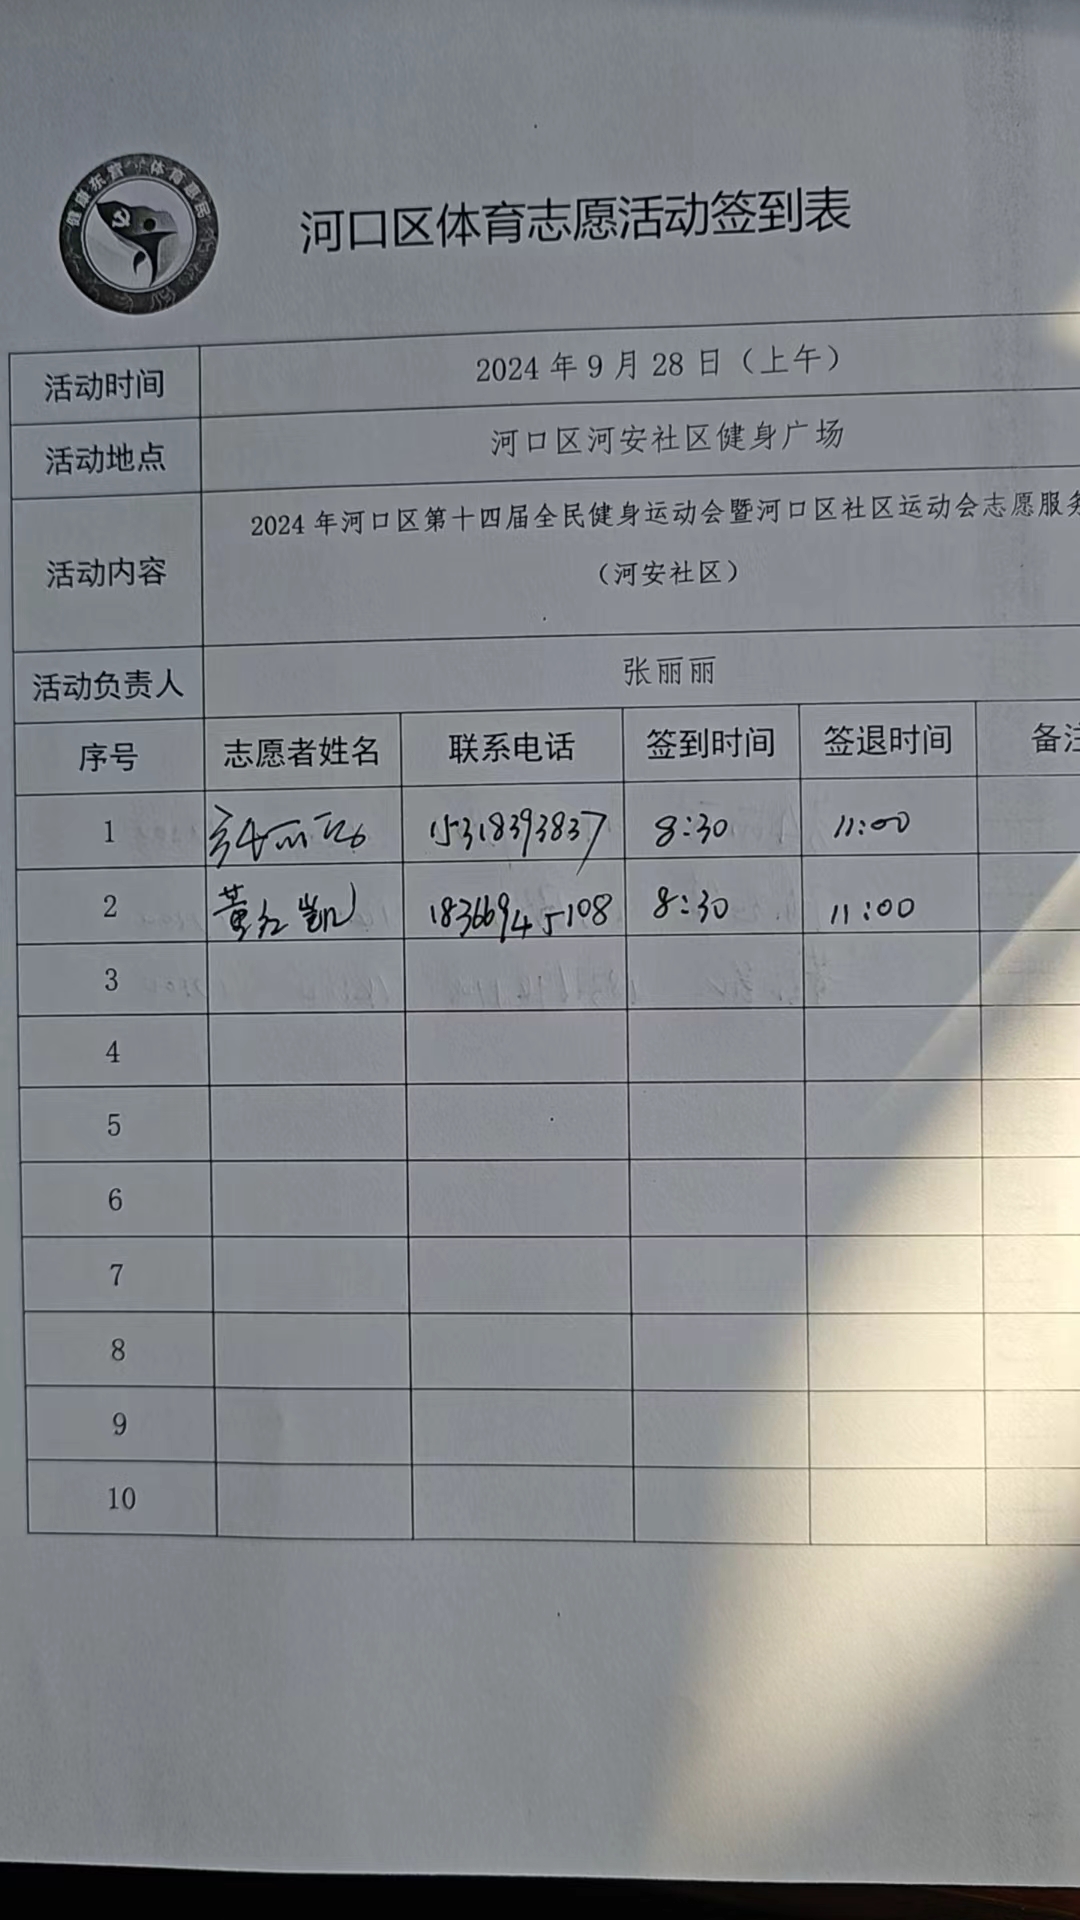 健康东营 体育惠民
河口区体育志愿活动签到表
活动时间 2024 年 9 月 28 日（上午）
活动地点 河口区河安社区健身广场
活动内容 2024 年河口区第十四届全民健身运动会暨河口区社区运动会志愿服务
（河安社区）
活动负责人 张丽丽
序号 志愿者姓名 联系电话 签到时间 签退时间 备注
1 张丽丽 15318393837 8:30 11:00
2 黄红凯 18366945108 8:30 11:00
3
4
5
6
7
8
9
10